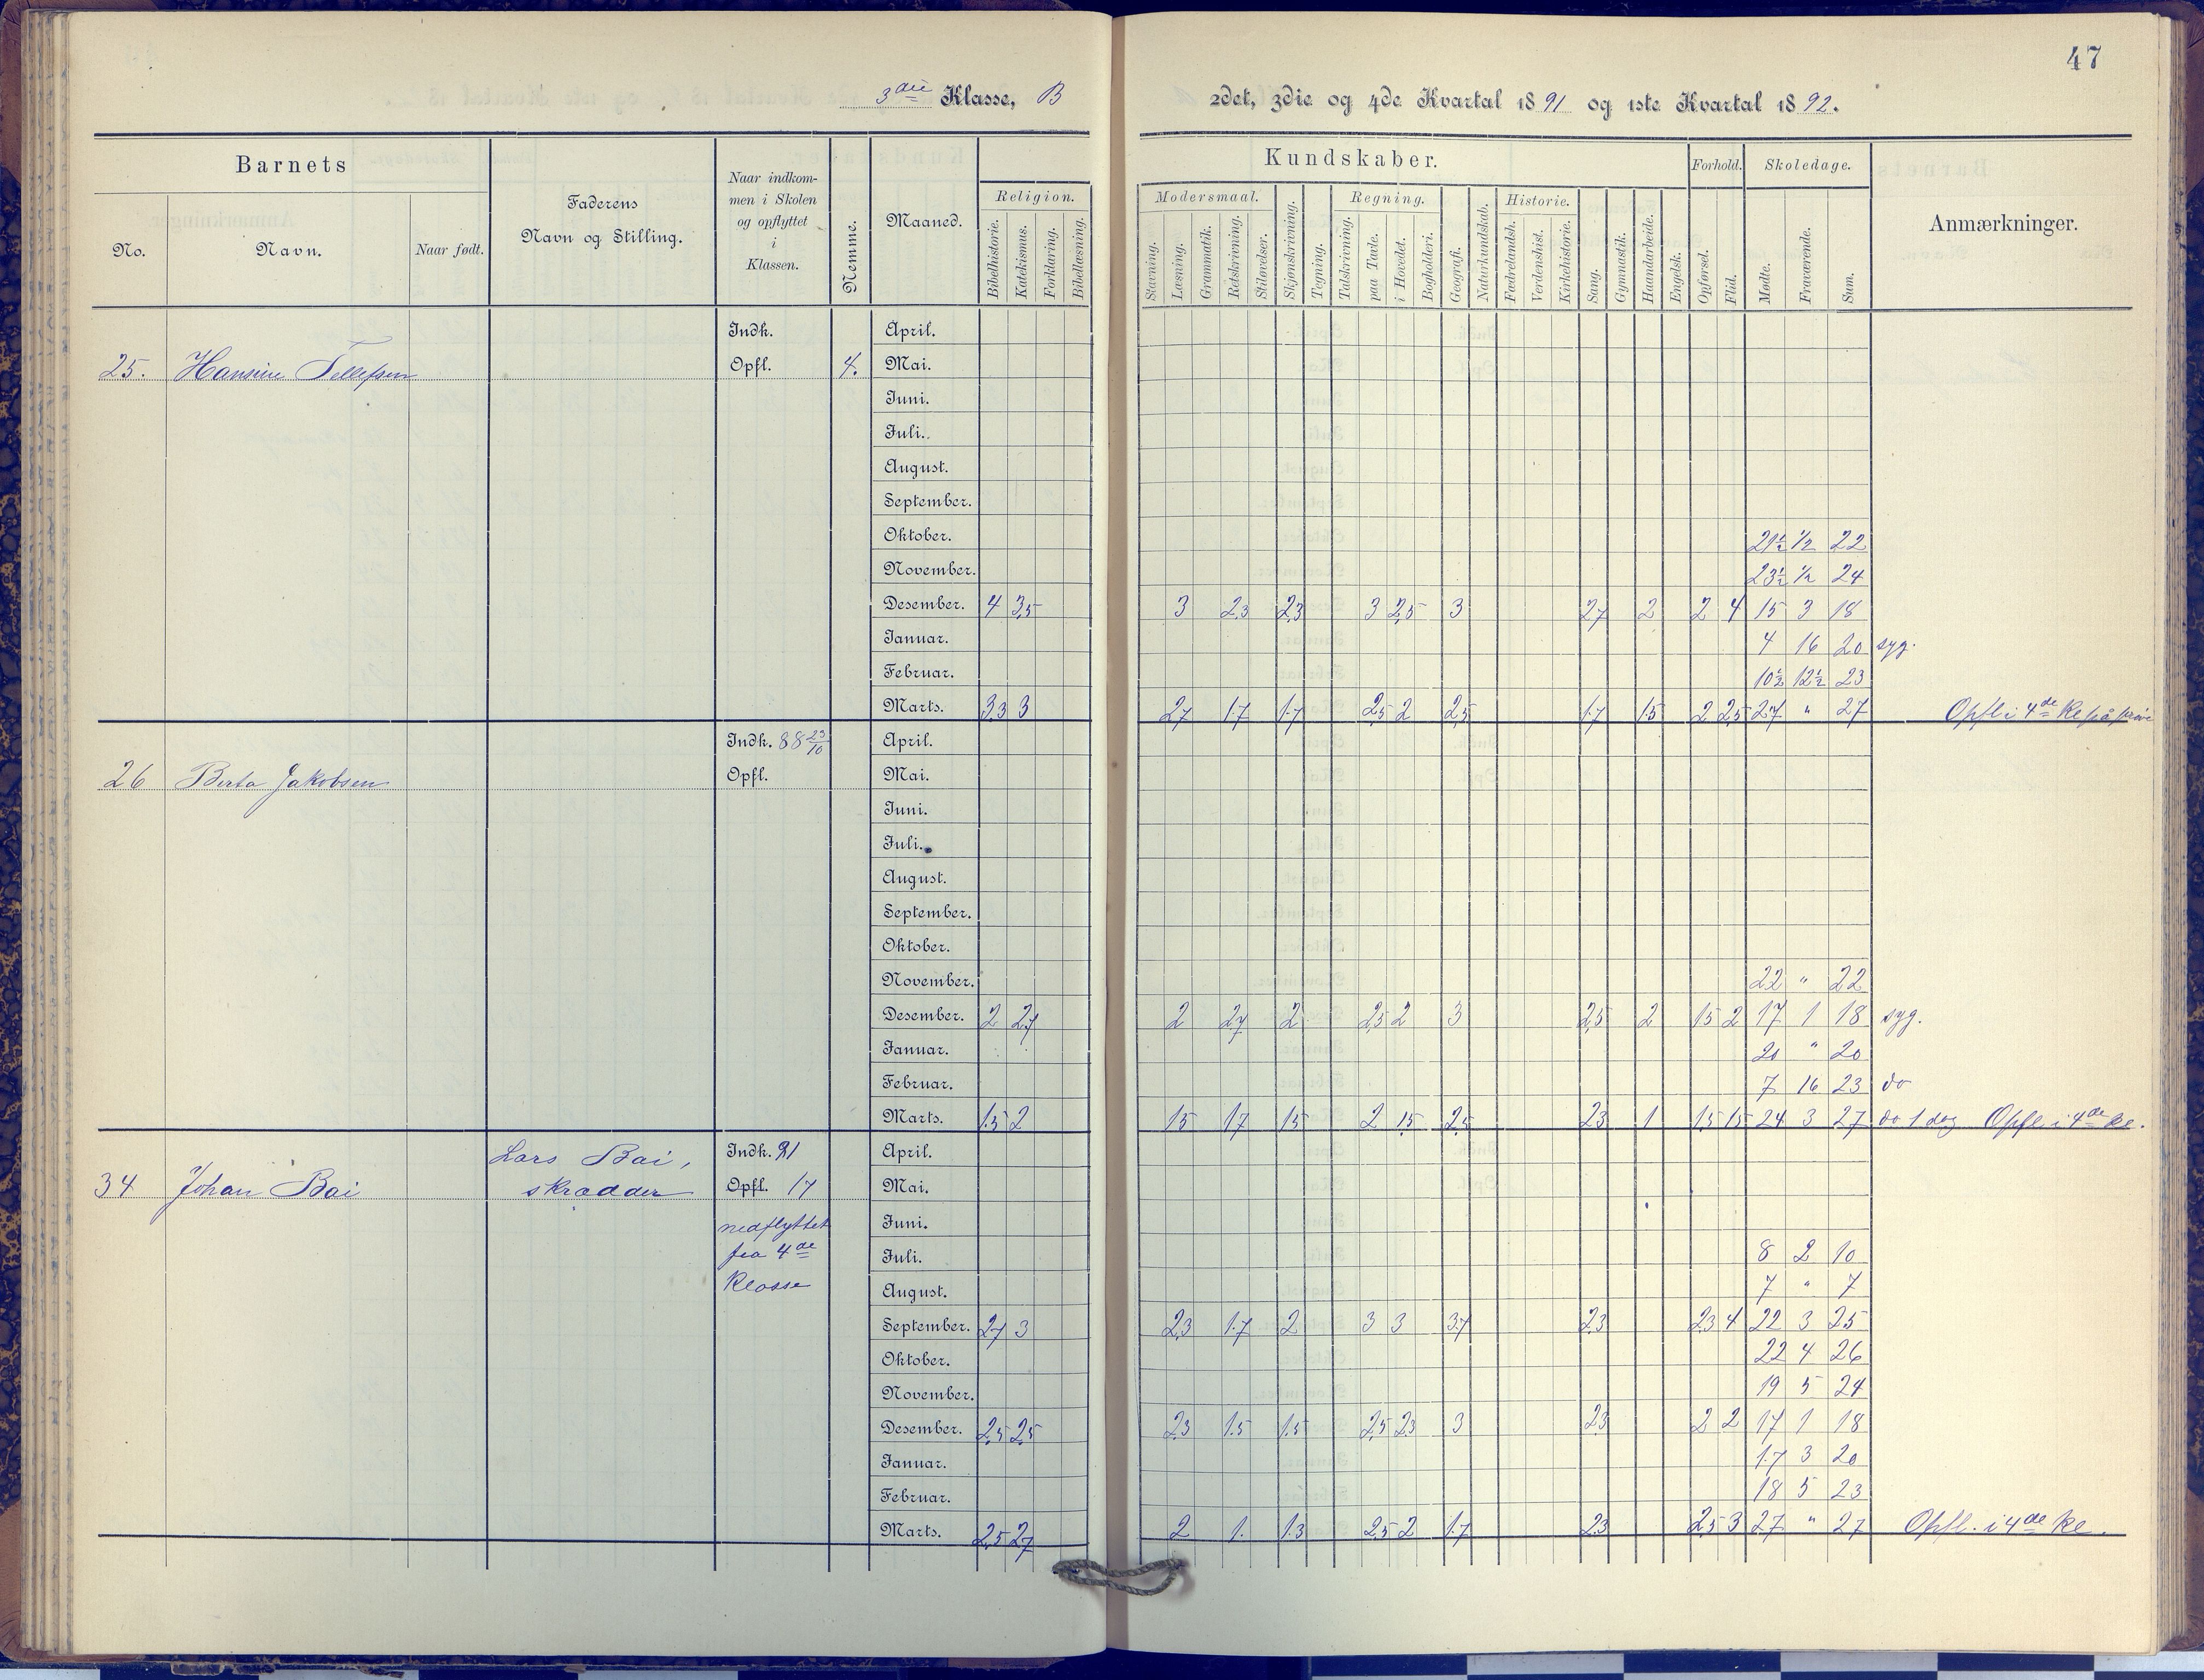 47
3die Klasse, B
2det, 3die og 4de Kvartal 1891 og 1ste Kvartal 1892.
Barnets
No.
Navn.
Naar født.
Faderens
Navn og Stilling.
Naar indkom-
men i Skolen
og opflyttet
i
Klassen.
Nemme.
Maaned.
Kundskaber.
Religion.
Bibelhistorie.
Katekismus.
Forklaring.
Bibellæsning.
Modersmaal.
Stavning.
Læsning.
Grammatik.
Retskrivning.
Stiløvelser.
Skjønskrivning.
Tegning.
Regning.
Talskrivning.
paa Tavle.
i Hovedet.
Bogholderi.
Geografi.
Naturkundskab.
Historie.
Fædrelandsh.
Verdenshist.
Kirkehistorie.
Sang.
Gymnastik.
Haandarbeide.
Engelsk.
Forhold.
Opførsel.
Flid.
Skoledage.
Mødte.
Fraværende.
Sum.
Anmærkninger.
Indk. April.
25. Hansine Tellefsen Opfl. 4. Mai.
Juni.
Juli.
August.
September.
Oktober. 21½ ½ 22
November. 23½ ½ 24
Desember. 4 3,5 3 2,3 2,3 3 2,5 3 2,7 2 2 4 15 3 18
Januar. 4 16 20 syg.
Februar. 10½ 12½ 23
Marts. 3,3 3 2,7 1,7 1,7 2,5 2 2,5 1,7 1,5 2 2,5 27 " 27 Opfl i 4de Kl på
Indk. 88 23/10 April.
26 Berta Jakobsen Opfl. Mai.
Juni.
Juli.
August.
September.
Oktober.
November. 22 " 22
Desember. 2 2,7 2 2,7 2 2,5 2 3 2,5 2 1,5 2 17 1 18 syg.
Januar. 20 " 20
Februar. 7 16 23 do
Marts. 1,5 2 1,5 1,7 1,5 2 1,5 2,5 2,3 1 1,5 1,5 24 3 27 do 1 dag Opfl. i 4de kl.
Lars Bai, Indk. 91 April.
34 Johan Bai skrædder Opfl. 17 Mai.
nedflyttet Juni.
fra 4de Juli. 8 2 10
Klasse August. 7 " 7
September. 2,7 3 2,3 1,7 2 3 3 3,7 2,3 2,3 4 22 3 25
Oktober. 22 4 26
November. 19 5 24
Desember. 2,5 2,5 2,3 1,5 1,5 2,5 2,3 3 2,3 2 2 17 1 18
Januar. 17 3 20
Februar. 18 5 23
Marts. 2,5 2,7 2 1. 1,3 2,5 2 1,7 2,3 2,5 3 27 " 27 Opfl. i 4de kl.